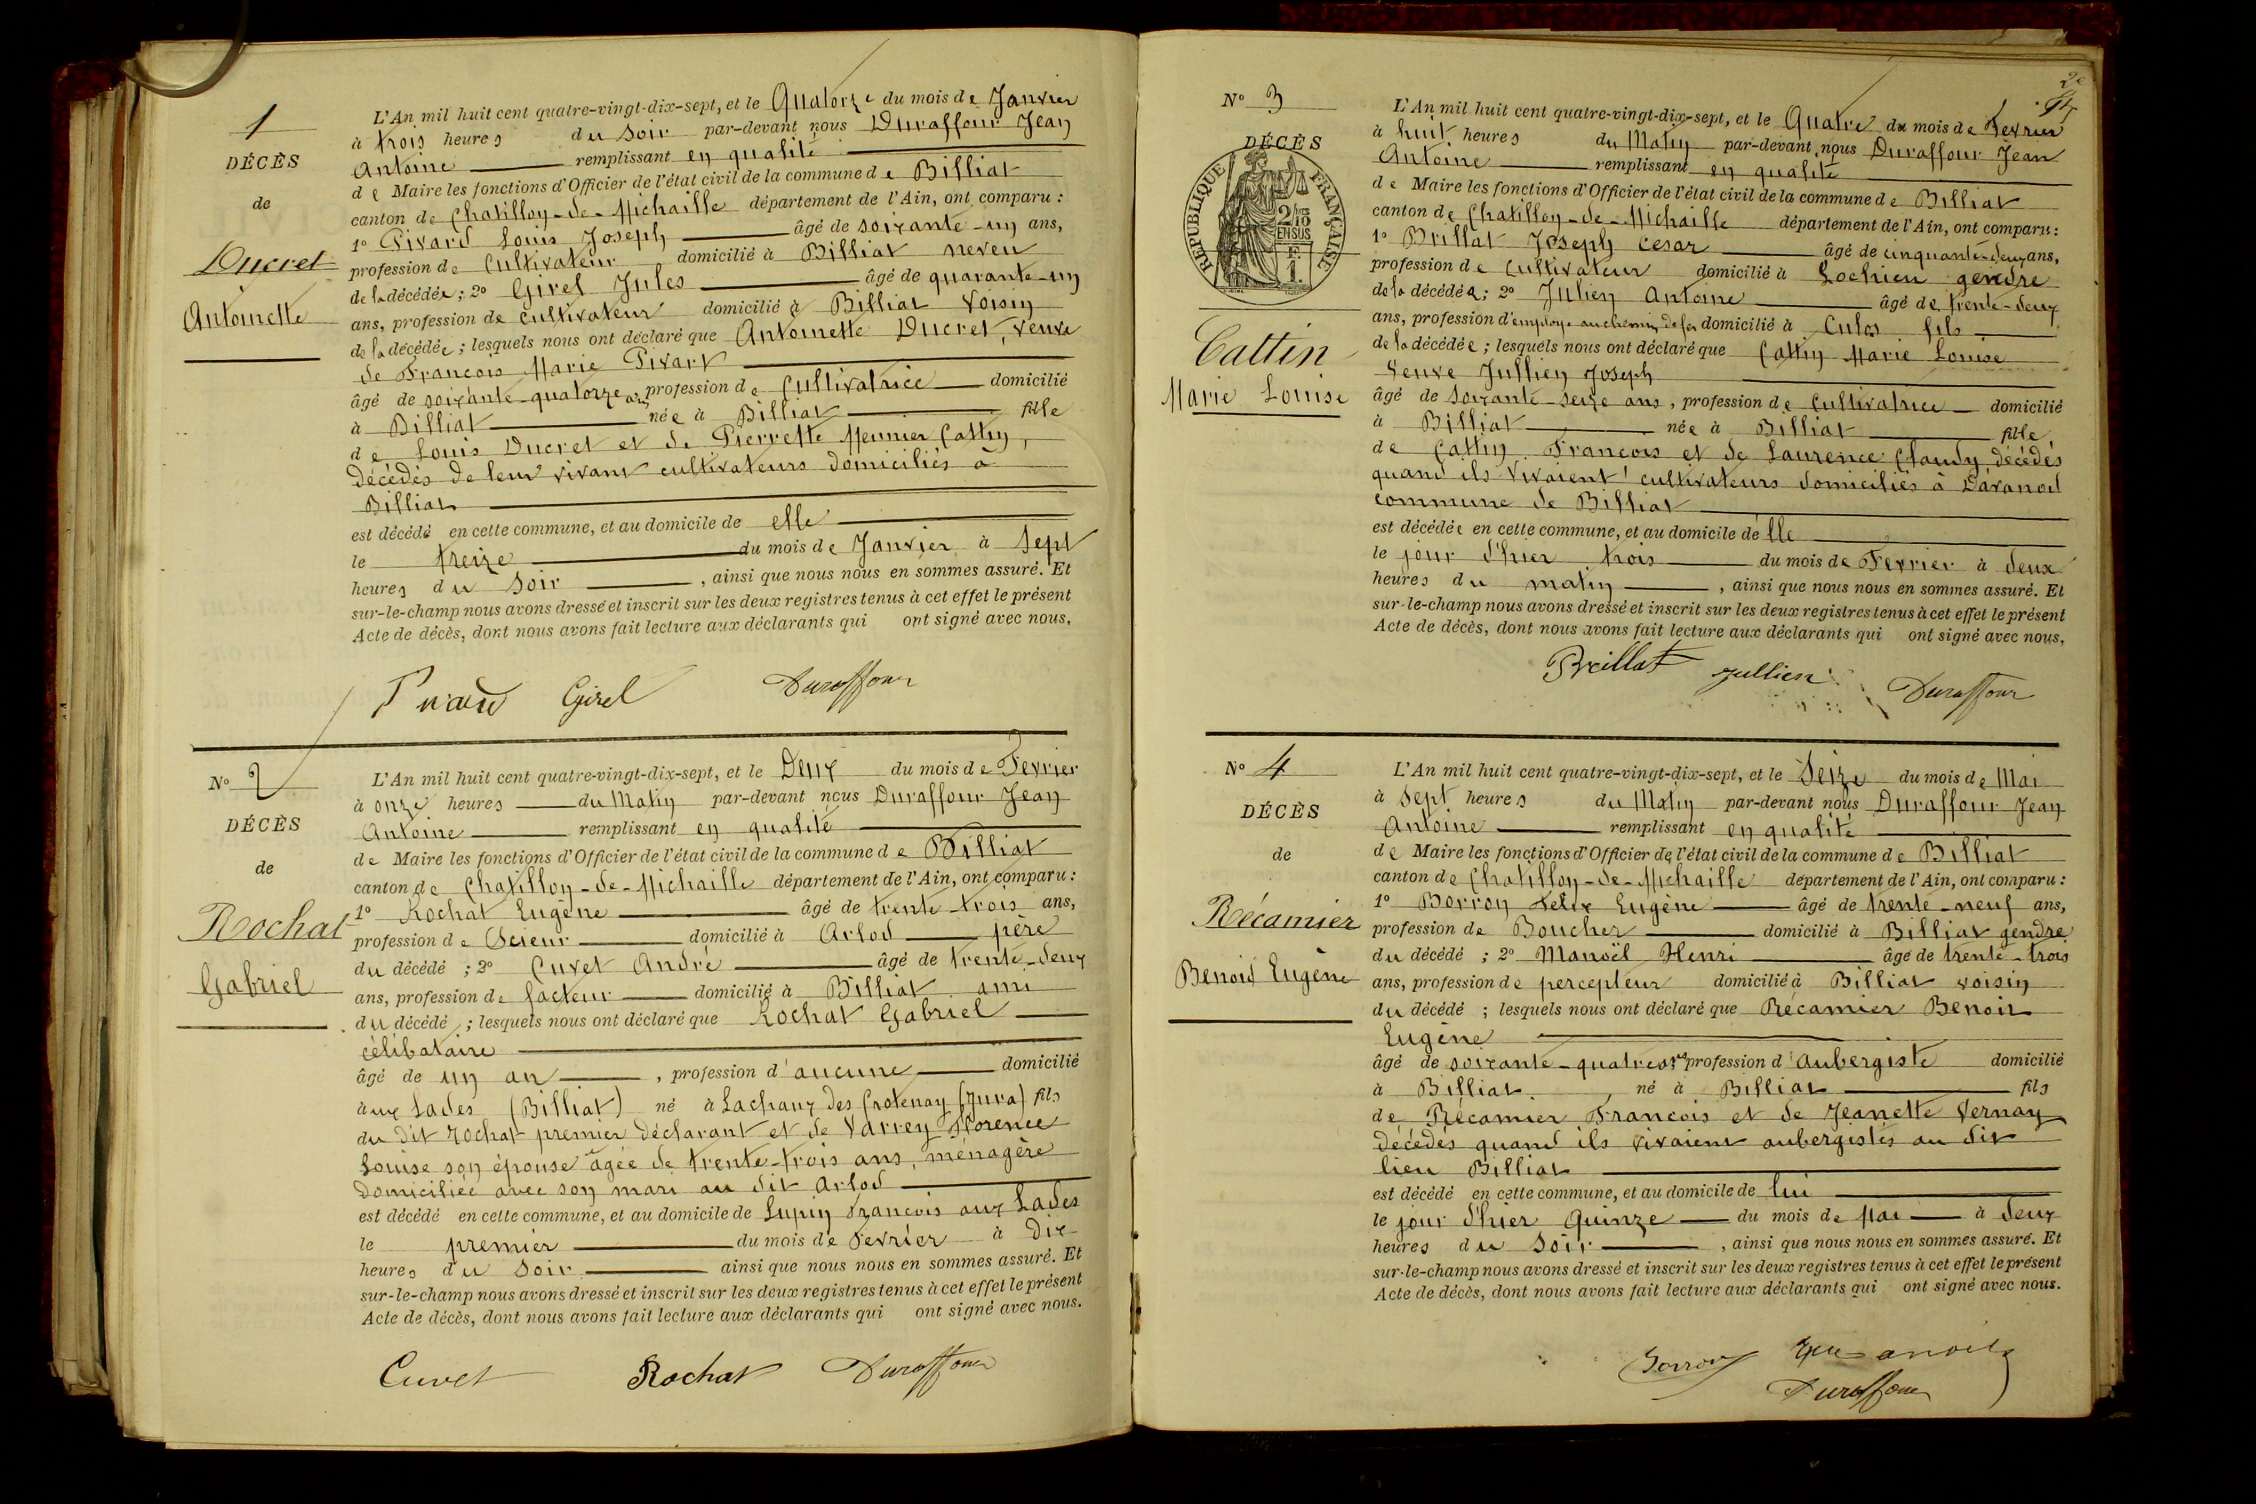 1
DÉCÈS
de
Ducret
Antoinette
L'An mil huit cent quatre-vingt-dix-sept, et le Quatorze du mois de Janvier
à trois heures du soir par-devant nous Duraffour Jean
Antoine remplissant en qualité
de Maire les fonctions d'Officier de l'état civil de la commune de Billiat
canton de Chatillon-de-Michaille département de l'Ain, ont comparu :
1º Pivard Louis Joseph âgé de soixante-un ans,
profession de Cultivateur domicilié à Billiat neveu
de la décédée ; 2º Girel Jules âgé de quarante-un
ans, profession de cultivateur domicilié à Billiat voisin
de la décédée ; lesquels nous ont déclaré que Antoinette Ducret, veuve
de Francois Marie Pivart
âgé de soixante-quatorze ans profession de Cultivatrice domicilié
à Billiat née à Billiat fille
de Louis Ducret et de Pierrette Meunier Cattin,
décédés de leur vivant cultivateurs domiciliés à
Billiat
est décédé en cette commune, et au domicile de elle
le treize du mois de Janvier à sept
heures du soir , ainsi que nous nous en sommes assuré. Et
sur-le-champ nous avons dressé et inscrit sur les deux registres tenus à cet effet le présent
Acte de décès, dont nous avons fait lecture aux déclarants qui ont signé avec nous,
Girel Duraffour
Nº 2
DÉCÈS
de
Rochat
Gabriel
L'An mil huit cent quatre-vingt-dix-sept, et le Deux du mois de Fevrier
à onze heures du Matin par-devant nous Duraffour Jean
Antoine remplissant en qualité
de Maire les fonctions d'Officier de l'état civil de la commune de Billiat
canton de Chatillon-de-Michaille département de l'Ain, ont comparu :
1º Rochat Eugène âgé de trente-trois ans,
profession de Scieur domicilié à Arlod père
du décédé ; 2º Cuvet André âgé de trente-deux
ans, profession de facteur domicilié à Billiat ami
du décédé ; lesquels nous ont déclaré que Rochat Gabriel
célibataire
âgé de un an , profession d'aucune domicilié
aux Lades (Billiat) né à Lachaux des Crotenay (Jura) fils
du dit Rochat premier déclarant et de Varrey Florence
Louise son épouse âgée de trente-trois ans, ménagère
domiciliée avec son mari au dit Arlod
est décédé en cette commune, et au domicile de Lupin Francois aux Lades
le premier du mois de Fevrier à dix
heures du soir ainsi que nous nous en sommes assuré. Et
sur-le-champ nous avons dressé et inscrit sur les deux registres tenus à cet effet le présent
Acte de décès, dont nous avons fait lecture aux déclarants qui ont signé avec nous.
Cuvet Rochat Duraffour
Nº 3
DÉCÈS
RÉPUBLIQUE FRANÇAISE
2/10 EN SUS
Cattin
Marie Louise
L'An mil huit cent quatre-vingt-dix-sept, et le Quatre du mois de Fevrier
à huit heures du Matin par-devant nous Duraffour Jean
Antoine remplissant en qualité
de Maire les fonctions d'Officier de l'état civil de la commune de Billiat
canton de Chatillon-de-Michaille département de l'Ain, ont comparu :
1º Brillat Joseph Cesar âgé de cinquante-deux ans,
profession de cultivateur domicilié à Lochieu gendre
de la décédée ; 2º Julien Antoine âgé de trente-deux
ans, profession d'employe au chemin de fer domicilié à Culoz fils
de la décédée ; lesquels nous ont déclaré que Cattin Marie Louise
veuve Jullien Joseph
âgé de soixante-seize ans, profession de Cultivatrice domicilié
à Billiat née à Billiat fille
de Cattin Francois et de Laurence Claudy décédés
quand ils vivaient cultivateurs domiciliés à Davanod
commune de Billiat
est décédée en cette commune, et au domicile de lle
le jour d'hier trois du mois de Fevrier à deux
heures du matin , ainsi que nous nous en sommes assuré. Et
sur-le-champ nous avons dressé et inscrit sur les deux registres tenus à cet effet le présent
Acte de décès, dont nous avons fait lecture aux déclarants qui ont signé avec nous,
Brillat Jullien Duraffour
Nº 4
DÉCÈS
de
Récamier
Benoit Eugène
L'An mil huit cent quatre-vingt-dix-sept, et le Seize du mois de Mai
à sept heures du Matin par-devant nous Duraffour Jean
Antoine remplissant en qualité
de Maire les fonctions d'Officier de l'état civil de la commune de Billiat
canton de Chatillon-de-Michaille département de l'Ain, ont comparu :
1º Borron Felix Eugène âgé de trente-neuf ans,
profession de Boucher domicilié à Billiat gendre
du décédé ; 2º Manoël Henri âgé de trente-trois
ans, profession de percepteur domicilié à Billiat voisin
du décédé ; lesquels nous ont déclaré que Récamier Benoit
Eugène
âgé de soixante-quatre ans profession d'aubergiste domicilié
à Billiat , né à Billiat fils
de Récamier Francois et de Jeanette Vernay
décédés quand ils vivaient aubergistes au dit
lieu Billiat
est décédé en cette commune, et au domicile de lui
le jour d'hier quinze du mois de Mai à deux
heures du soir , ainsi que nous nous en sommes assuré. Et
sur-le-champ nous avons dressé et inscrit sur les deux registres tenus à cet effet le présent
Acte de décès, dont nous avons fait lecture aux déclarants qui ont signé avec nous.
Borron Duraffour